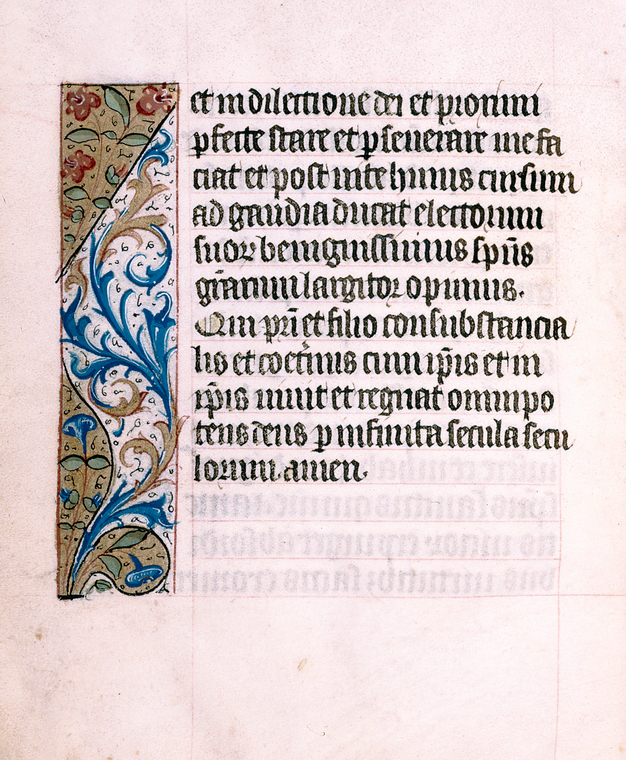 et in dilectione dei et proximi
pfecte stare et pseuerare me fa
ciat et post vite huius cursum
ad gaudia ducat electorum
suor benignissimus spūs
grāarum largitor optimus.
Qui prī et filio consubstancia
lis et coetnus cum ip̄is et in
ip̄is viuit et regnat omnipo
tens deus p infinita secula secu
lorum amen.